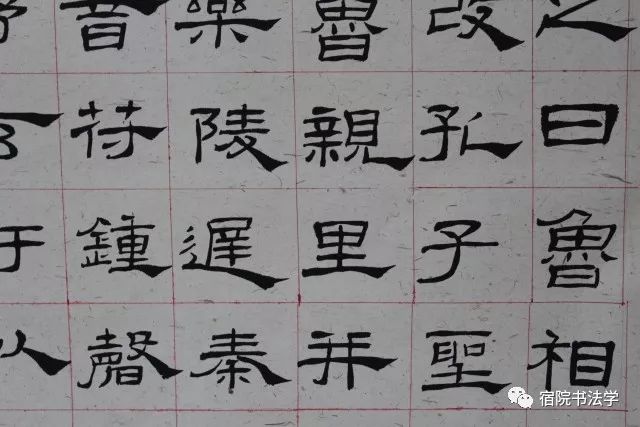 之曰魯相
改孔子聖
魯親里并
樂陵遲秦
音苻鍾磬
于
宿院书法学